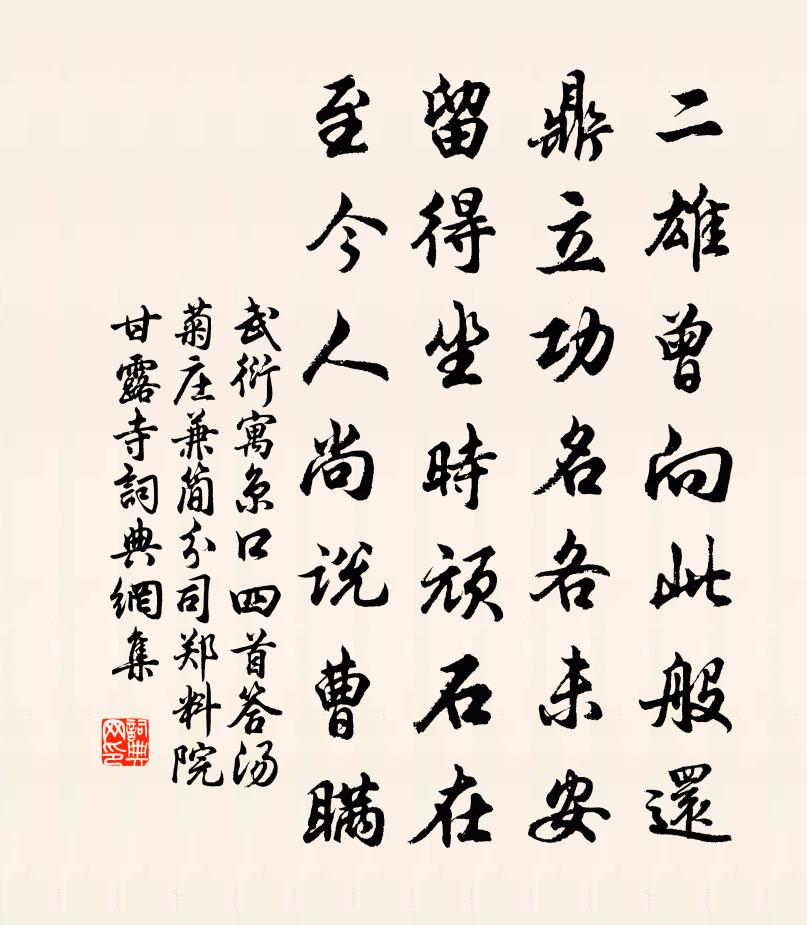 二雄曾向此般還
鼎立功名各未安
留得坐時頑石在
至今人尚说曹瞞
武衍寓京口四首答汤
菊庄兼简分司郑料院
甘露寺詞典網集
詞典網印